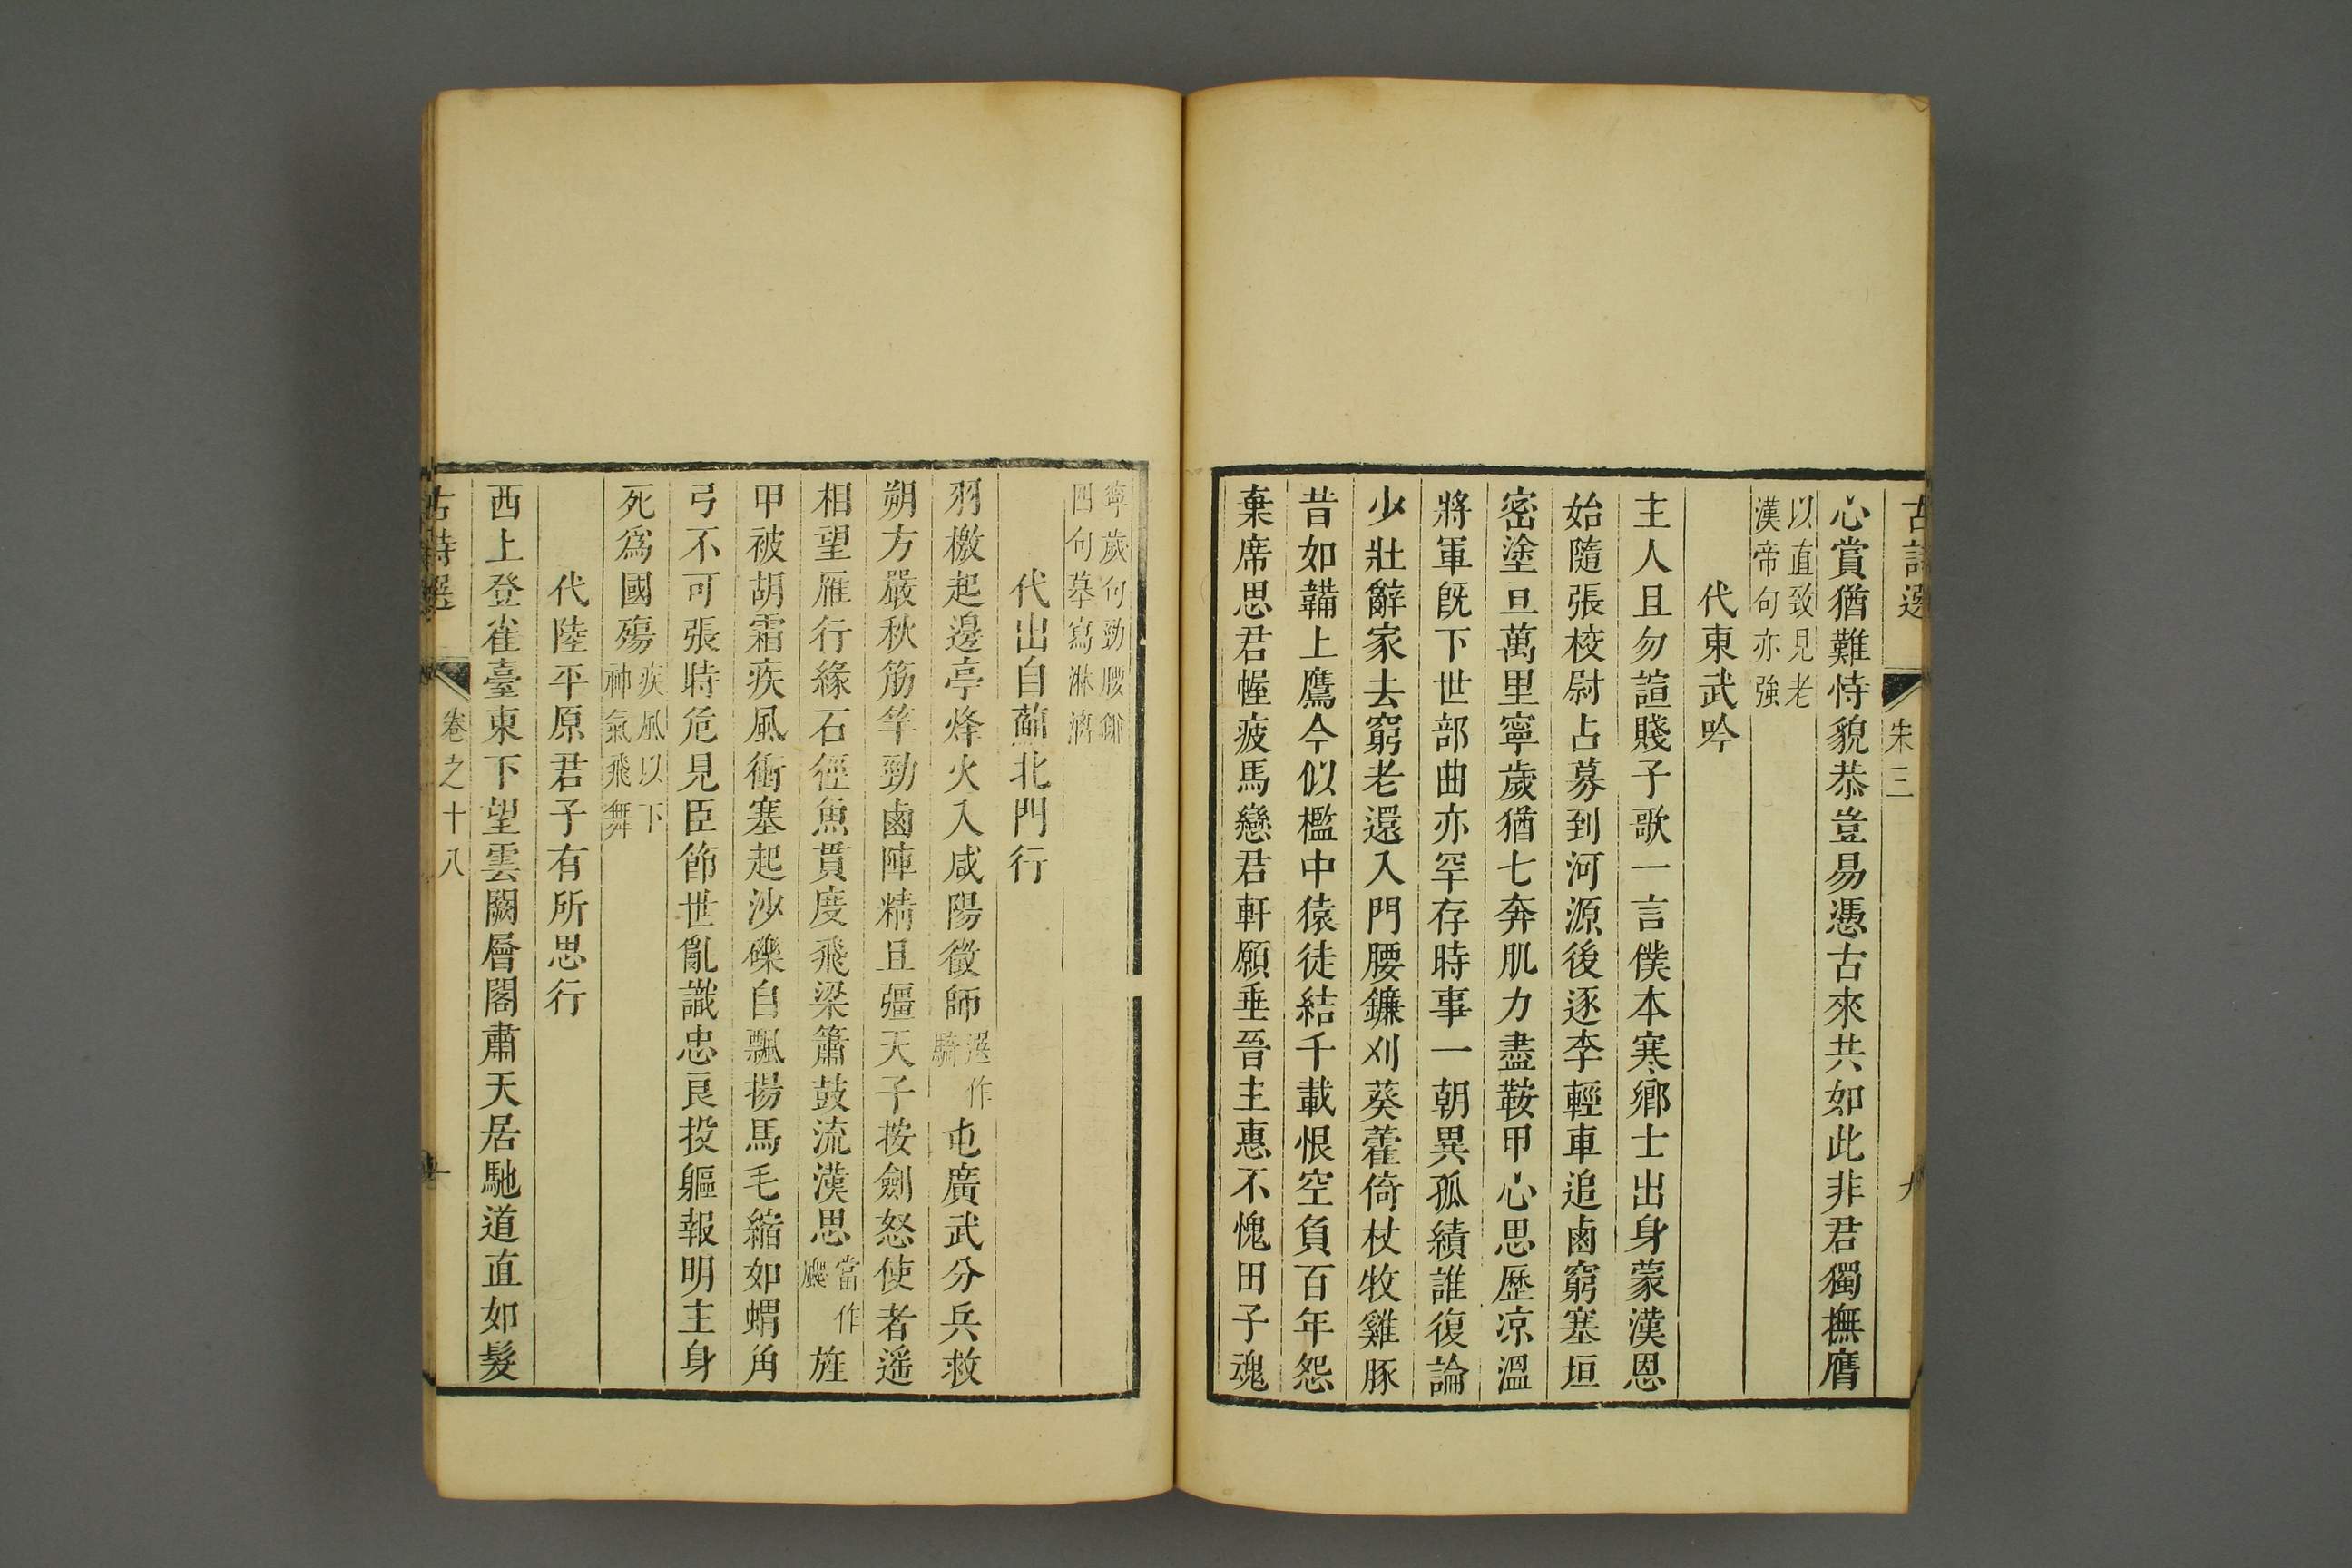 古詩選 宋三 九
心賞猶難恃貌恭豈易憑古來共如此非君獨撫膺
以直致見老
漢帝句亦強
代東武吟
主人且勿諠賤子歌一言僕本寒鄉士出身蒙漢恩
始隨張校尉占募到河源後逐李輕車追鹵窮塞垣
密塗亘萬里寧歲猶七奔肌力盡鞍甲心思歷凉溫
將軍既下世部曲亦罕存時事一朝異孤績誰復論
少壯辭家去窮老還入門腰鐮刈葵藿倚杖牧雞豚
昔如韝上鷹今似檻中猿徒結千載恨空負百年怨
棄席思君幄疲馬戀君軒願垂晉主惠不愧田子魂
寧歲句勁腰鐮
四句摹寫淋漓
代出自薊北門行
羽檄起邊亭烽火入咸陽徵師選作騎屯廣武分兵救
朔方嚴秋筋竿勁鹵陣精且彊天子按劍怒使者遥
相望雁行緣石徑魚貫度飛梁簫鼓流漢思當作颸旌
甲被胡霜疾風衝塞起沙礫自飄揚馬毛縮如蝟角
弓不可張時危見臣節世亂識忠良投軀報明主身
死爲國殤疾風以下神氣飛舞
代陸平原君子有所思行
西上登雀臺東下望雲闕層閣肅天居馳道直如髮
古詩選 卷之十八